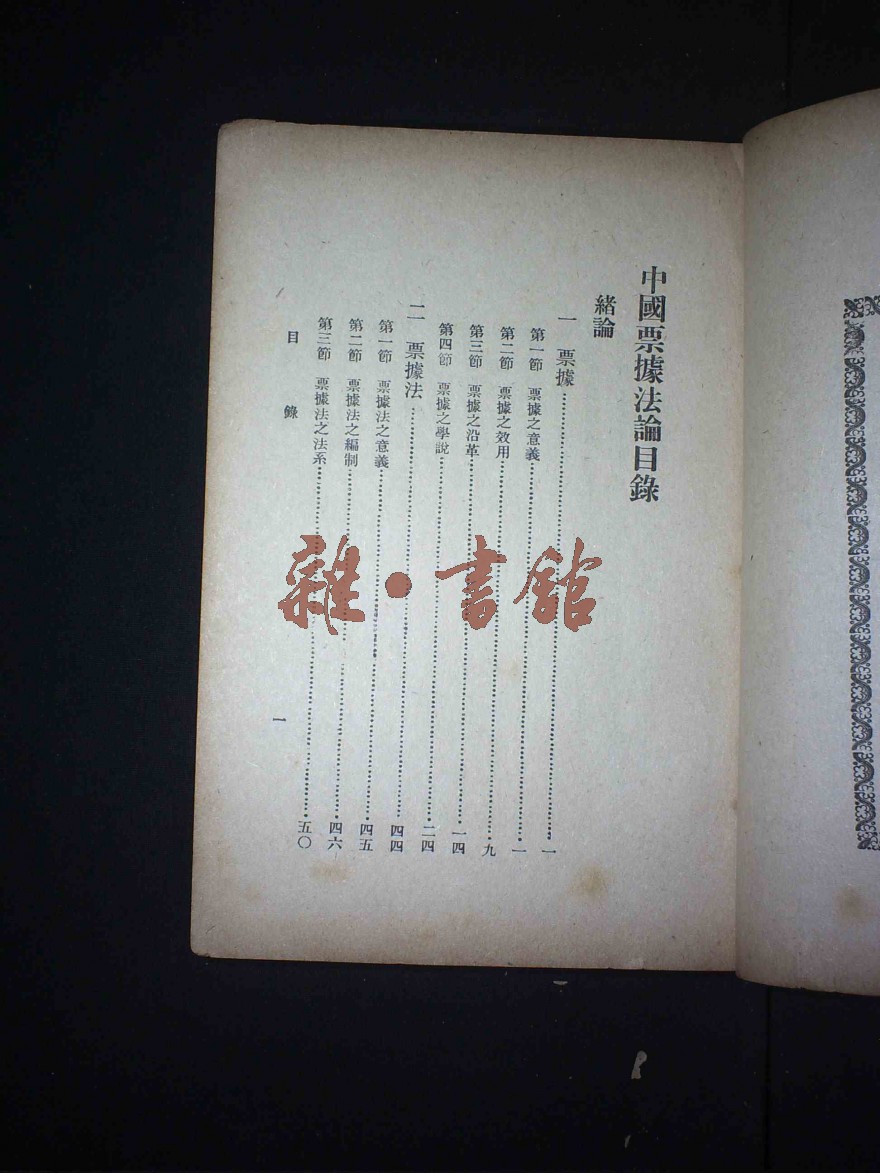 中國票據法論目錄
緒論
一 票據……一
第一節 票據之意義……一
第二節 票據之效用……九
第三節 票據之沿革……一四
第四節 票據之學說……二四
二 票據法……四四
第一節 票據法之意義……四五
第二節 票據法之編制……四六
第三節 票據法之法系……五〇
目錄
一
雜·書館